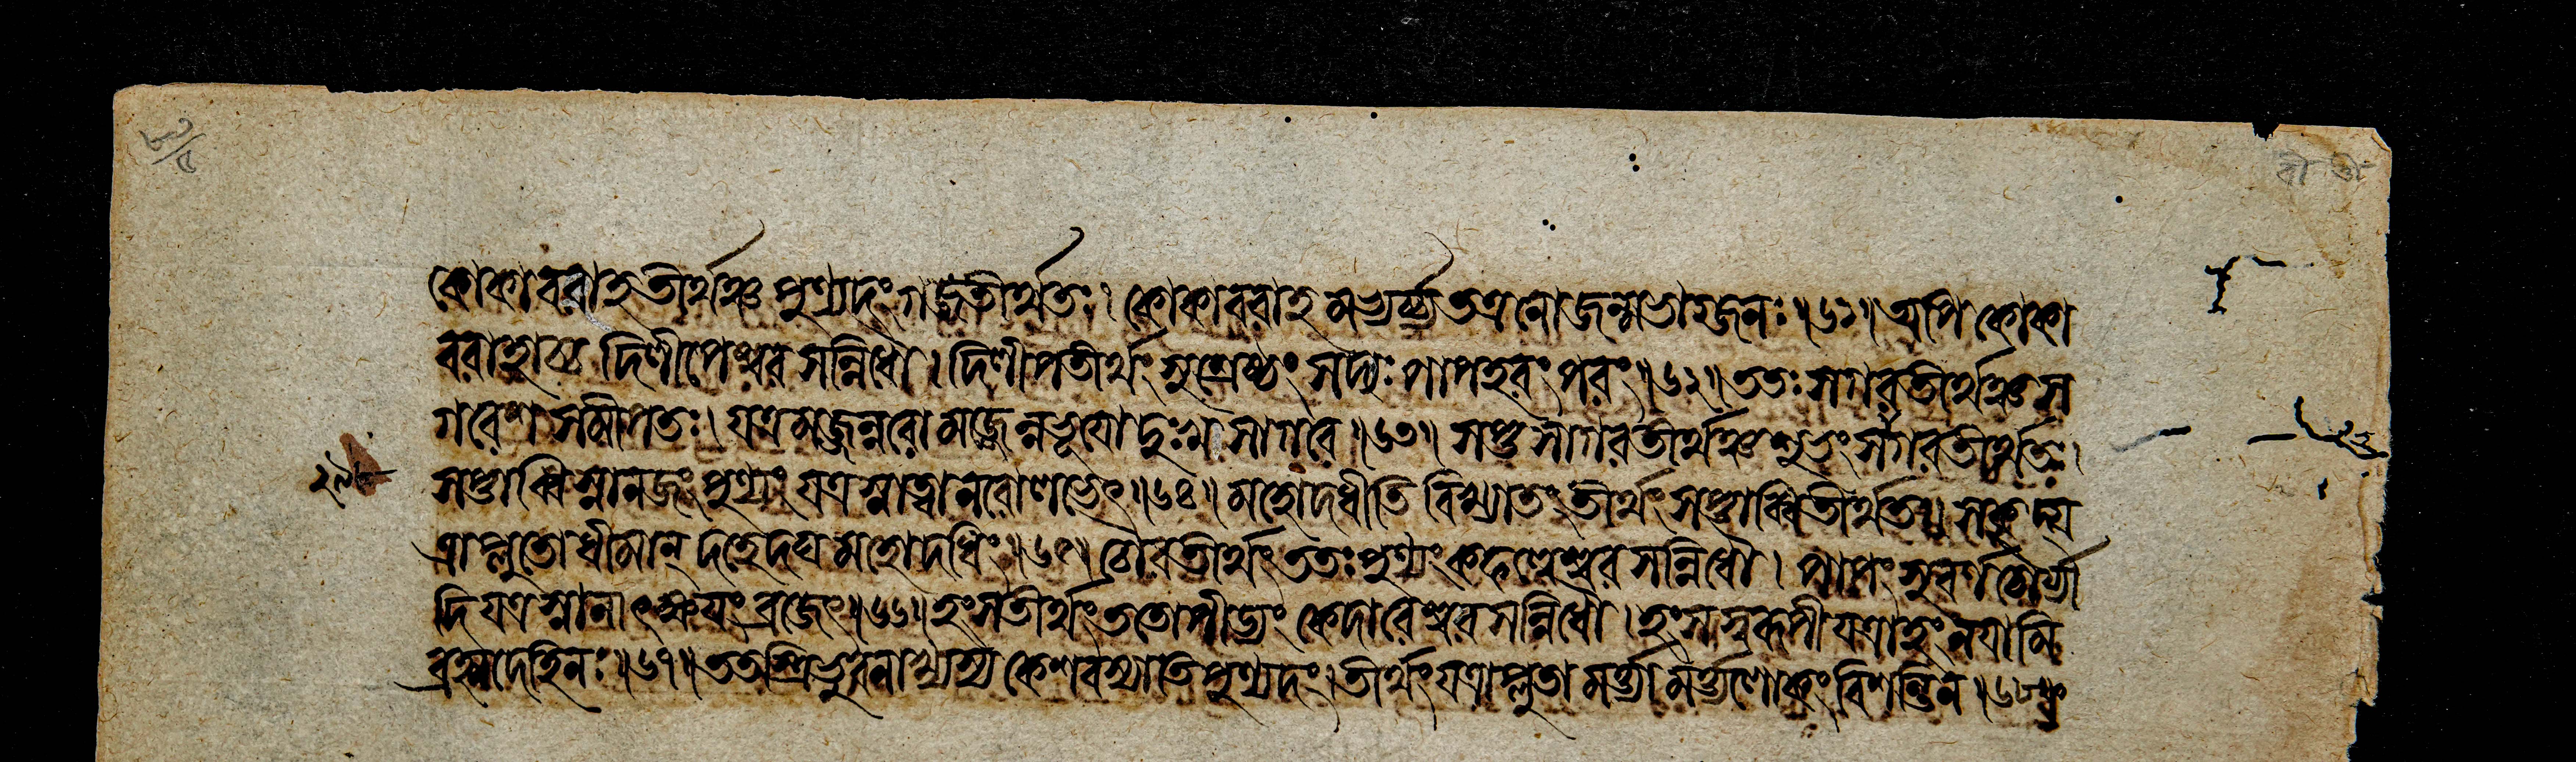 কোকাবরাহতীর্থঞ্চ পুণ্যদং গজতীর্থতঃ। কোকাবরাহমভ্যর্চ্য তত্র নো জন্মভাগ্জনঃ॥৬১॥ অপি কোকা
বরাহাচ্চ দিলীপেশ্বরসন্নিধৌ। দিলীপতীর্থং সুশ্রেষ্ঠং সদ্যঃ পাপহরং পরং॥৬২॥ ততঃ সগরতীর্থঞ্চ স
গরেশসমীপতঃ। যত্র মজ্জন্নরো মজ্জেন্নভূয়ো দুঃখসাগরে॥৬৩॥ সপ্তসাগরতীর্থঞ্চ শুভং সগরতীর্থতঃ।
সপ্তাব্ধিস্নানজং পুণ্যং যত্র স্নাত্বা নরো লভেৎ॥৬৪॥ মহোদধীতি বিখ্যাতং তীর্থং সপ্তাব্ধিতীর্থতঃ। সকৃদ্য
ত্রাপ্লুতো ধীমান্ দহেদঘমহোদধিং॥৬৫॥ চৌরতীর্থং ততঃ পুণ্যং কহ্ণেশ্বরসন্নিধৌ। পাপং সুবর্ণচৌর্য্যা
দি যত্র স্নানাৎ ক্ষয়ং ব্রজেৎ॥৬৬॥ হংসতীর্থং ততোপীড্যং কেদারেশ্বরসন্নিধৌ। হংসস্বরূপী যত্রাহং নয়ামি
ব্রহ্মদেহিনঃ॥৬৭॥ ততস্ত্রিভুবনাখ্যস্য কেশবস্যাতিপুণ্যদং। তীর্থং যত্রাপ্লুতা মর্ত্ত্যা মর্ত্ত্যলোকং বিশন্তি ন॥৬৮॥